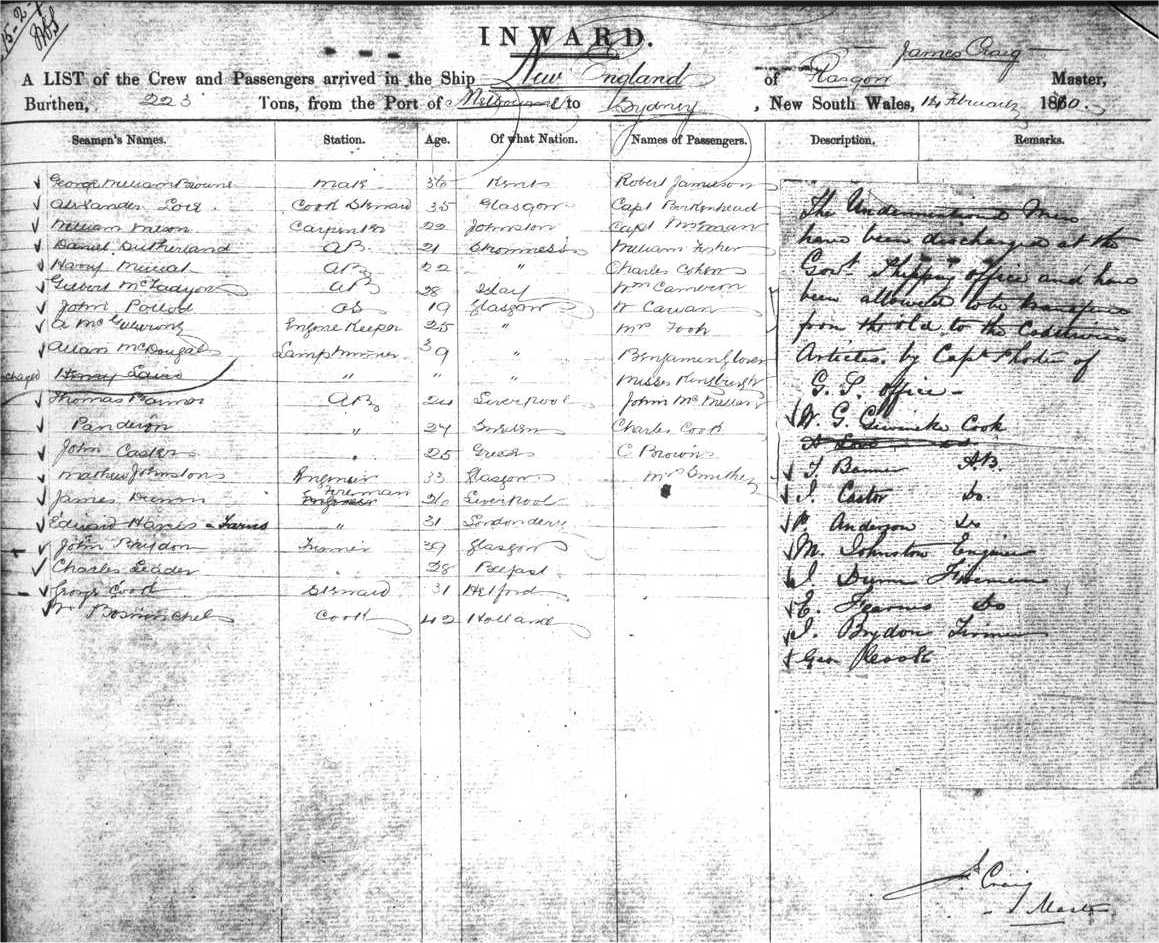 15-2-
INWARD.
James Craig
A LIST of the Crew and Passengers arrived in the Ship New England of Glasgow Master,
Burthen, 223 Tons, from the Port of Melbourne to Sydney, New South Wales, 12 February 1860.
Seamen's Names. Station. Age. Of what Nation. Names of Passengers. Description, Remarks.
George William Browne Mate 36 Kent Robert Jamieson
Alexander Cook Steward 35 Glasgow Capt Birkenhead
William Carpenter 22 Johnston Capt
Daniel Sutherland AB 21 Stromness William Fisher
Harry AB 22 " Charles Cohen
Gilbert McFadyon AB 28 Islay Wm Cameron
John Pollock OS 19 Glasgow W Cawan
A Engine Keeper 25 " Mrs Fook
Allan McDougal Lamp Trimmer 39 " Benjamin Glover
Henry " " " Misses
Thomas AB 24 Liverpool John McMillan
" 27 Sweden Charles Cook
John Caster " 25 Greece C Brown
Mathew Johnstons Engineer 33 Glasgow Mrs Smither
James Fireman 26 Liverpool
Edward Harris - Farris " 31 Londonderry
John Brydon Trimmer 39 Glasgow
Charles Leader 28 Belfast
George Cook Steward 31 Helford
Cook 42 Holland
The Undermentioned Men
have been discharged at the
Govt Shipping office and have
been allowed to be transferred
from the old to the Coastwise
Articles by Capt of
G. S. office -
W. G. Cook
T. A.B.
J. Castor Do
P. Anderson Do
M. Johnston Engineer
J. Dunn Fireman
E. Fearns Do
J. Brydon Trimmer
Geo Cook
J. Craig
Master